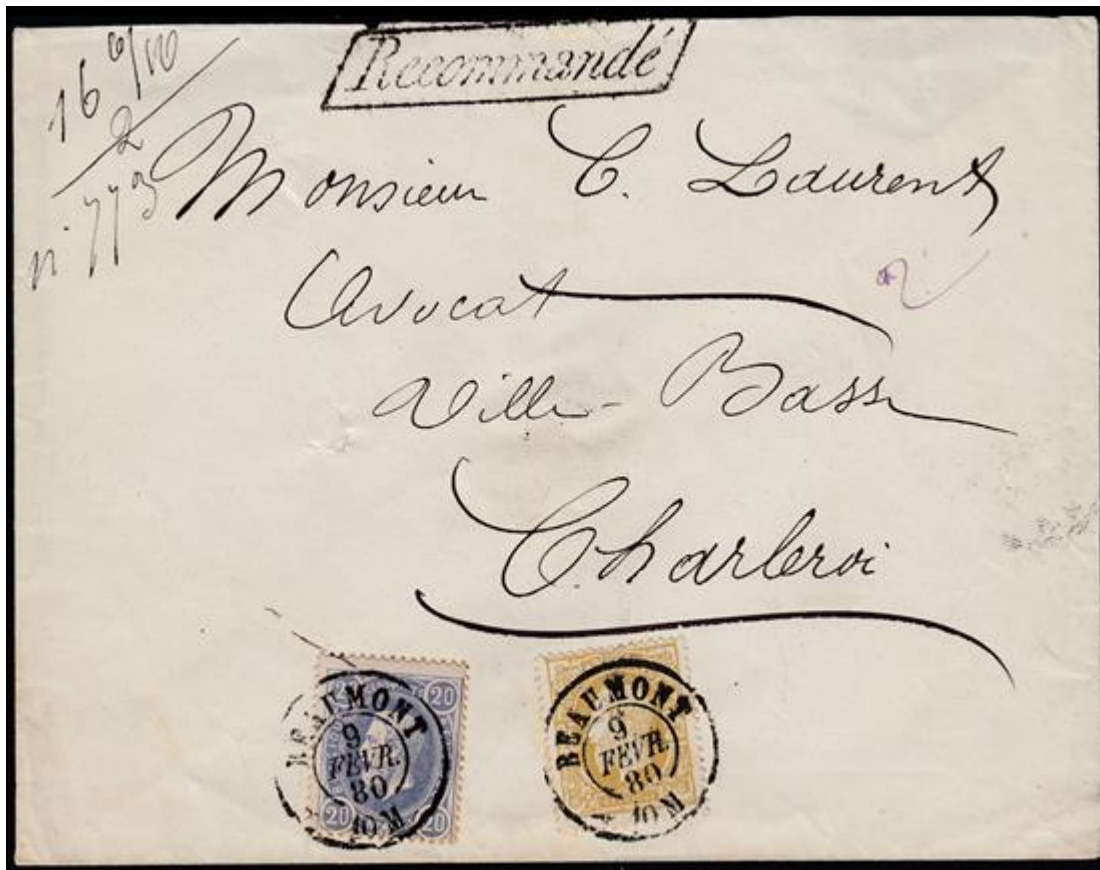 Recommandé
16
2
n° 773
Monsieur C. Laurent
Avocat
Ville-Basse
Charleroi
20
20
20
BEAUMONT
9
FEVR.
80
10 M
BEAUMONT
9
FEVR.
80
10 M